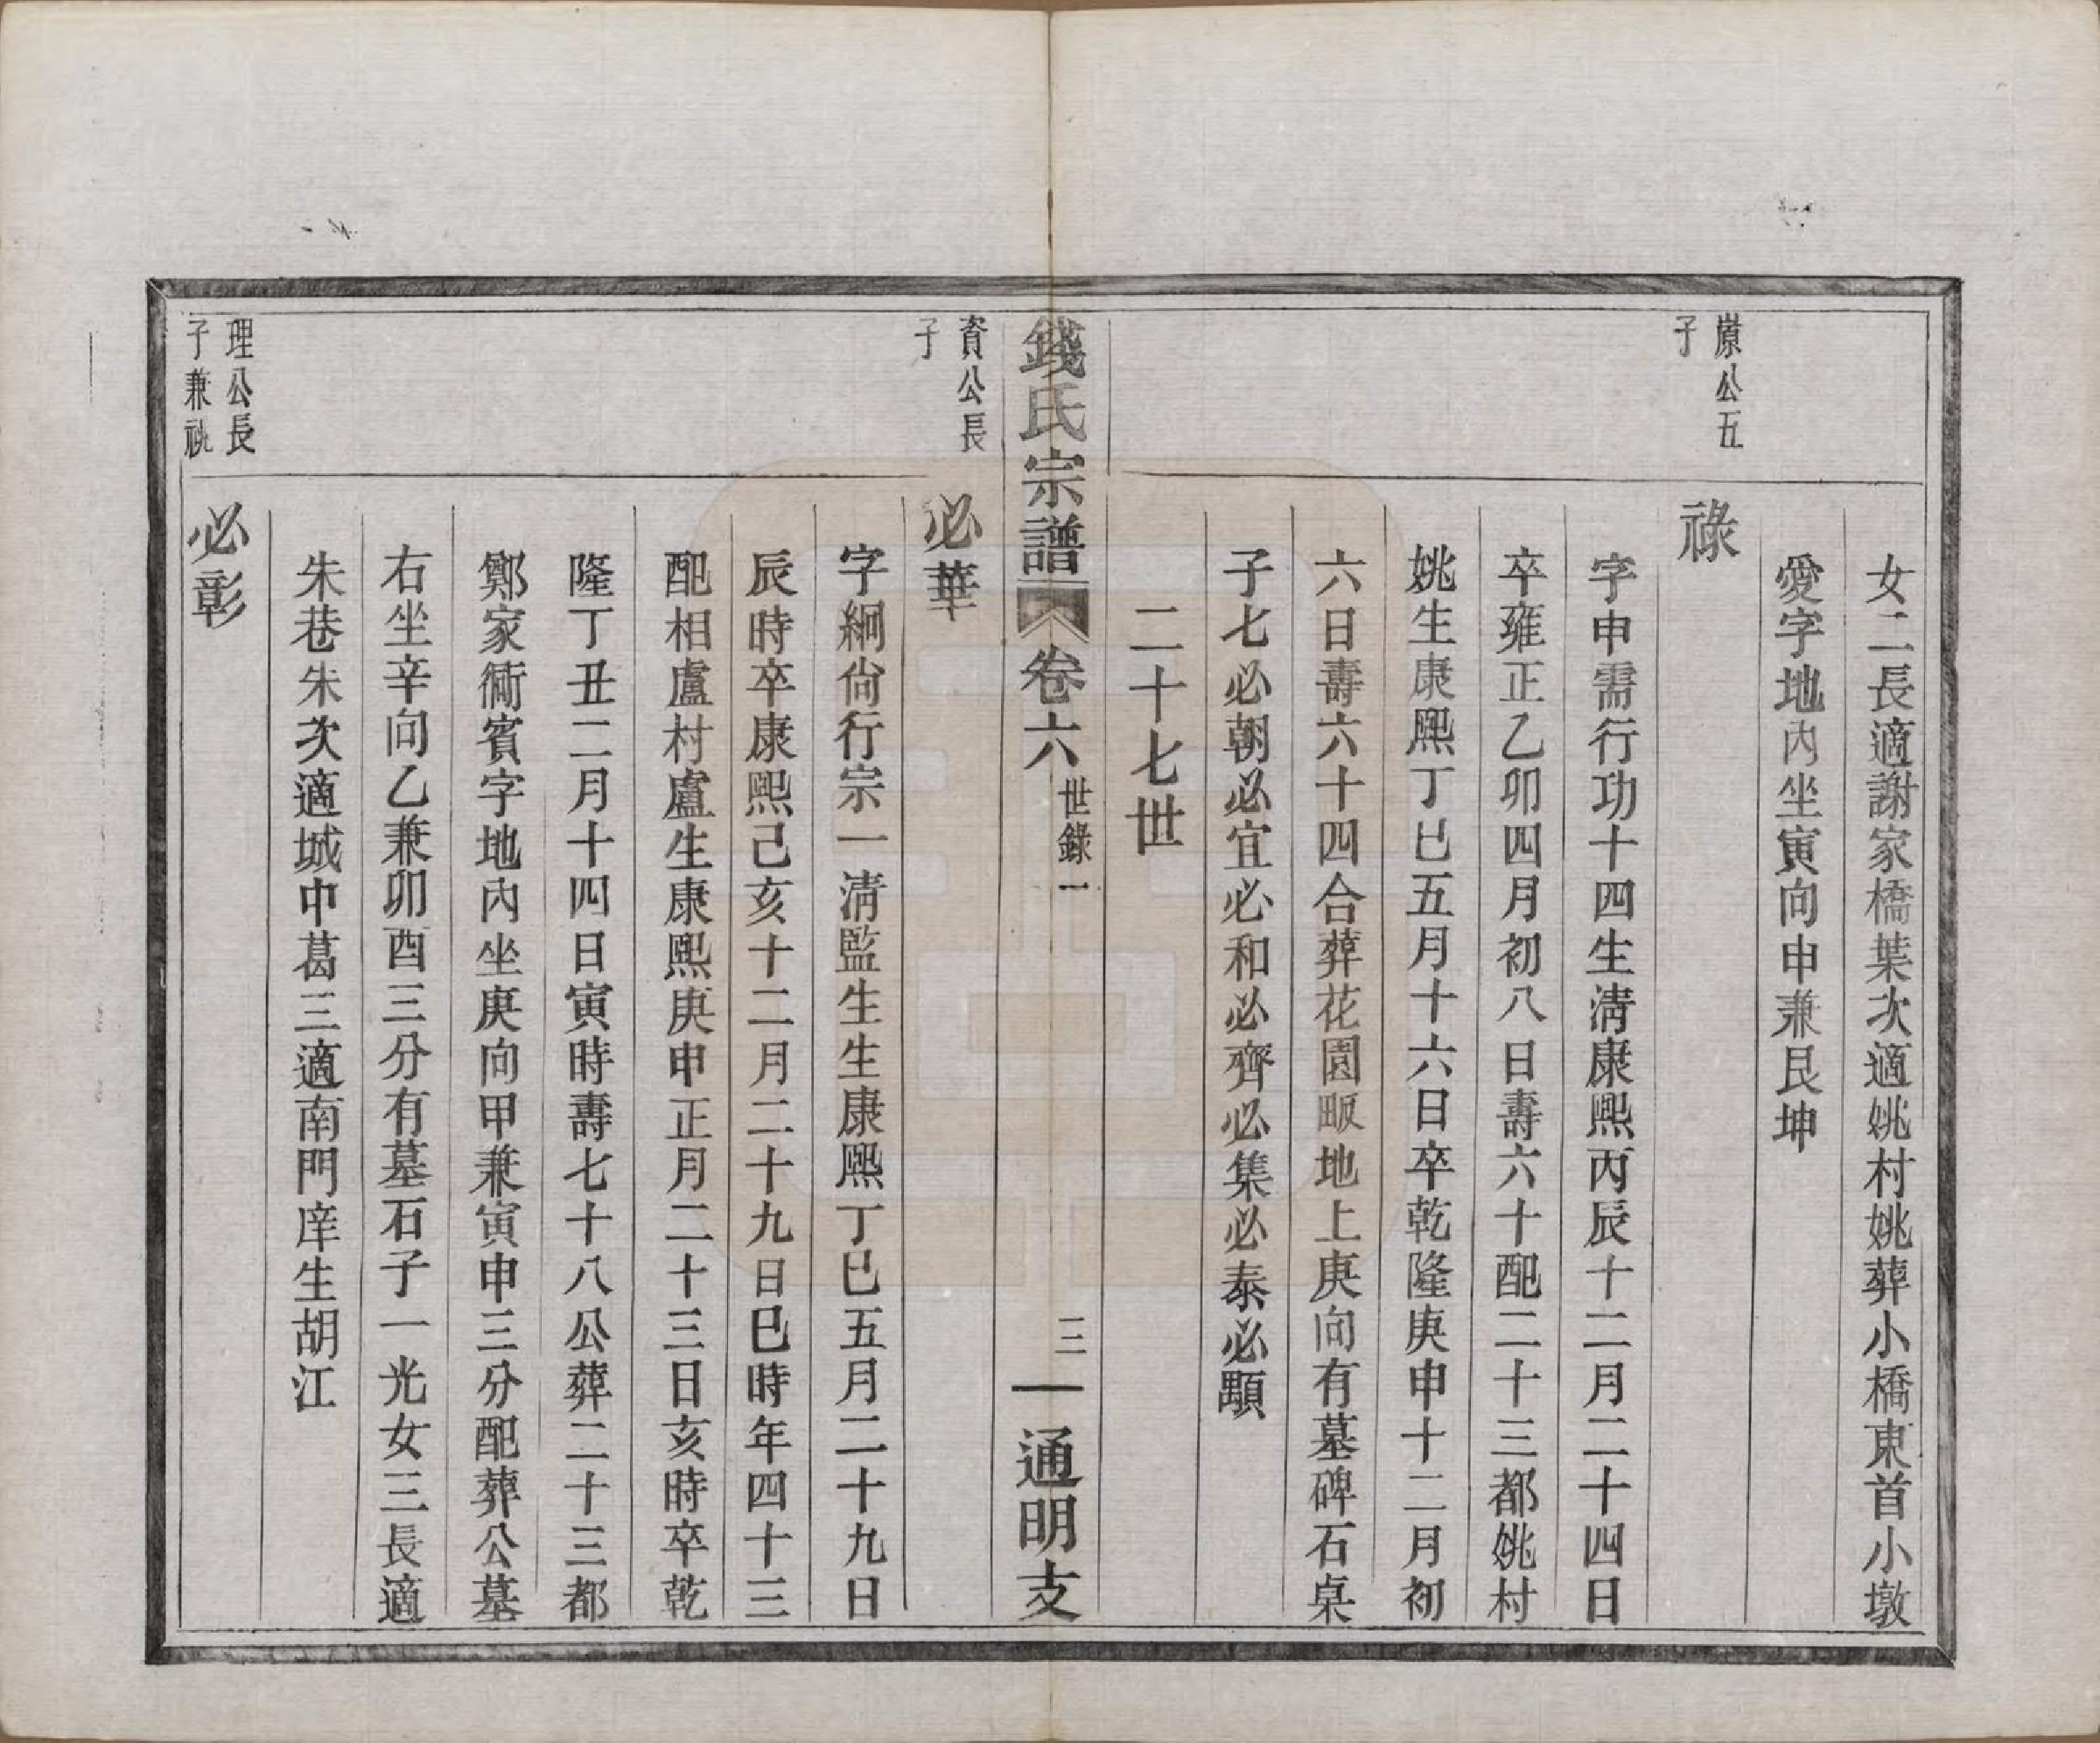 女二長適謝家橋葉次適姚村姚葬小橋東首小墩
愛字地內坐寅向申兼艮坤
原公五
子
祿
字申需行功十四生淸康熙丙辰十二月二十四日
卒雍正乙卯四月初八日壽六十配二十三都姚村
姚生康熙丁巳五月十六日卒乾隆庚申十二月初
六日壽六十四合葬花園畈地上庚向有墓碑石桌
子七必朝必宜必和必齊必集必泰必顯
二十七世
錢氏宗譜 卷六 世錄一 三 通明支
資公長
子
必華
字絅尙行宗一淸監生生康熙丁巳五月二十九日
辰時卒康熙己亥十二月二十九日巳時年四十三
配相盧村盧生康熙庚申正月二十三日亥時卒乾
隆丁丑二月十四日寅時壽七十八公葬二十三都
鄭家衕賓字地內坐庚向甲兼寅申三分配葬公墓
右坐辛向乙兼卯酉三分有墓石子一光女三長適
朱巷朱次適城中葛三適南門庠生胡江
理公長
子兼祧
必彰